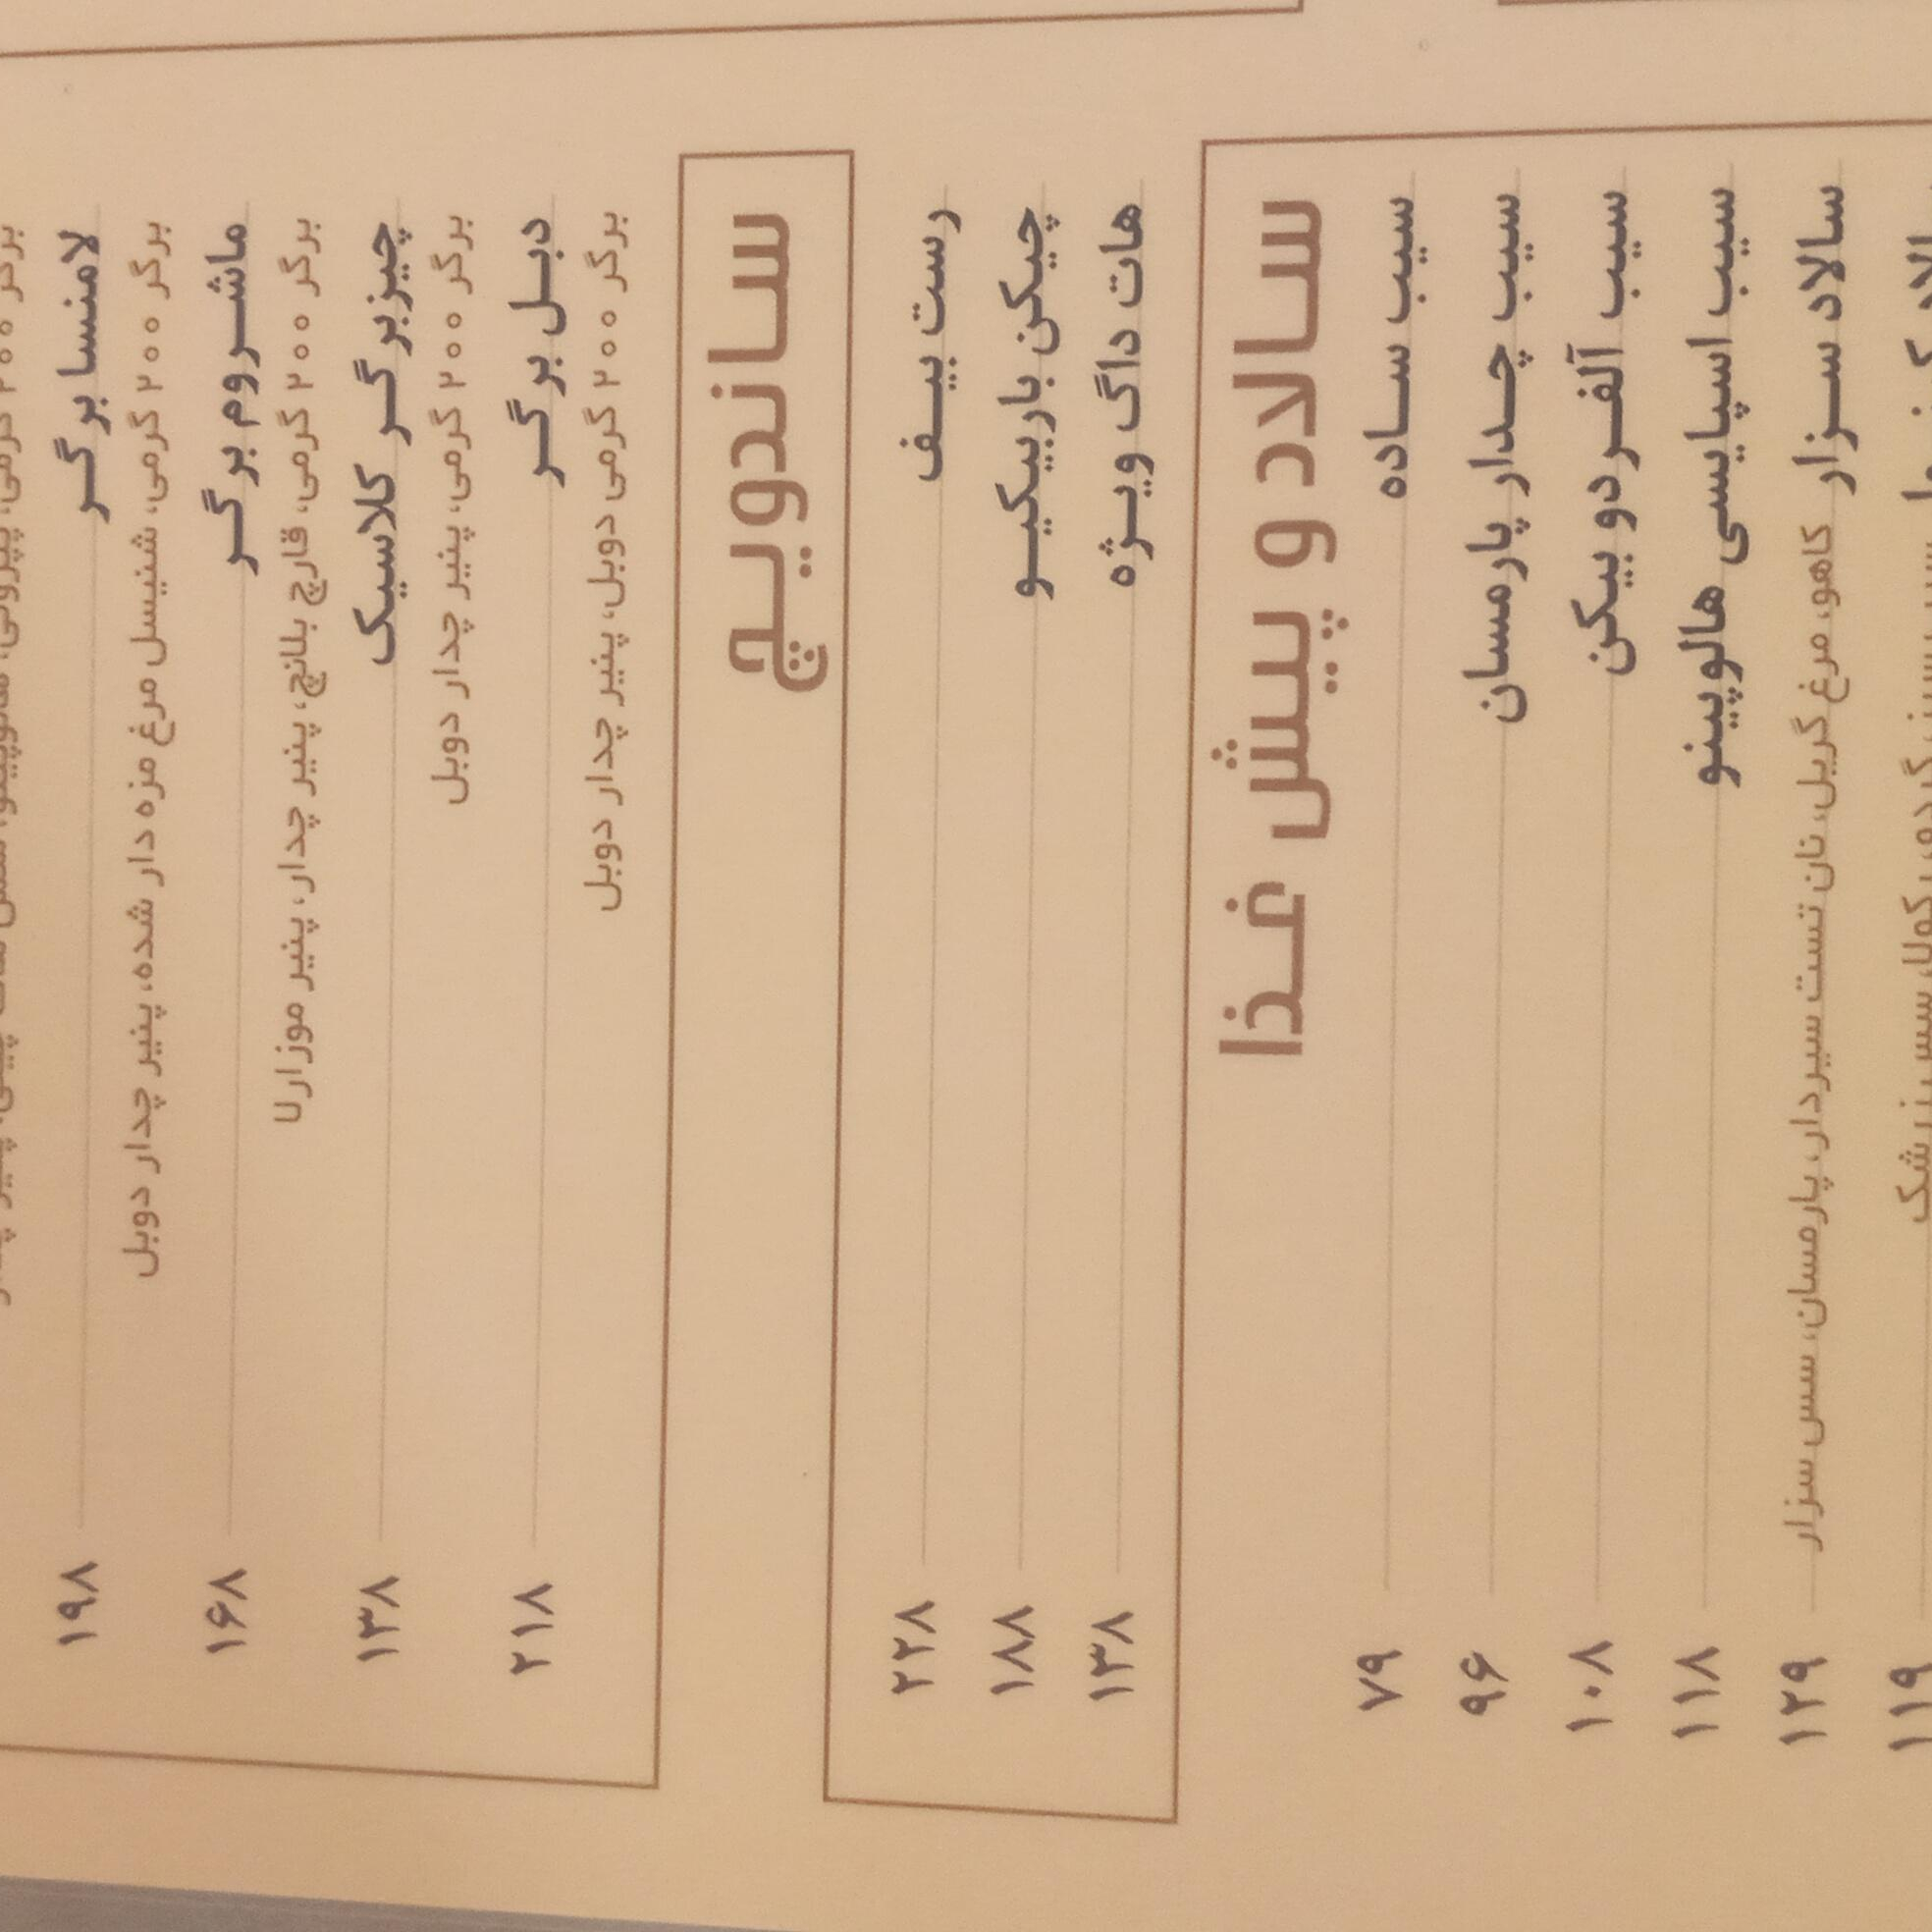 برگر ۲۰۰ گرمی، پپرونی، هالوپینو، سس
لامنسا برگر ۱۹۸
برگر ۲۰۰ گرمی، شنیسل مرغ مزه دار شده، پنیر چدار دوبل
ماشروم برگر ۱۶۸
برگر ۲۰۰ گرمی، قارچ بلانچ، پنیر چدار، پنیر موزارلا
چیزبرگر کلاسیک ۱۳۸
برگر ۲۰۰ گرمی، پنیر چدار دوبل
دبل برگر ۲۱۸
برگر ۲۰۰ گرمی دوبل، پنیر چدار دوبل
ساندویچ
رست بیف ۲۲۸
چیکن باربیکیو ۱۸۸
هات داگ ویژه ۱۳۸
سالاد و پیش غذا
سیب ساده ۷۹
سیب چدار پارمسان ۹۶
سیب آلفردو بیکن ۱۰۸
سیب اسپایسی هالوپینو ۱۱۸
سالاد سزار کاهو، مرغ گریل، نان تست سیردار، پارمسان، سس سزار ۱۲۹
گردو، رکولا، سس زرشک ۱۱۹